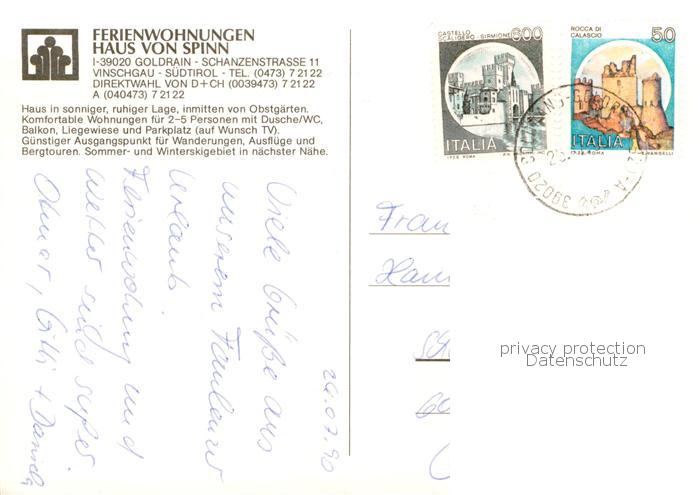 FERIENWOHNUNGEN
HAUS VON SPINN
I-39020 GOLDRAIN - SCHANZENSTRASSE 11
VINSCHGAU - SÜDTIROL - TEL. (0473) 7 21 22
DIREKTWAHL VON D+CH (0039473) 7 21 22
A (040473) 7 21 22
Haus in sonniger, ruhiger Lage, inmitten von Obstgärten.
Komfortable Wohnungen für 2-5 Personen mit Dusche/WC,
Balkon, Liegewiese und Parkplatz (auf Wunsch TV).
Günstiger Ausgangspunkt für Wanderungen, Ausflüge und
Bergtouren. Sommer- und Winterskigebiet in nächster Nähe.
CASTELLO
SCALIGERO - SIRMIONE
600
ITALIA
I.P.Z.S. ROMA
ROCCA DI
CALASCIO
50
ITALIA
I.P.Z.S. ROMA
39020
26.07.90
Viele Grüße aus
unserem
Urlaub.
Ferienwohnung und
Wetter sind super.
Otmar, Gitti + Daniela
Frau
privacy protection
Datenschutz